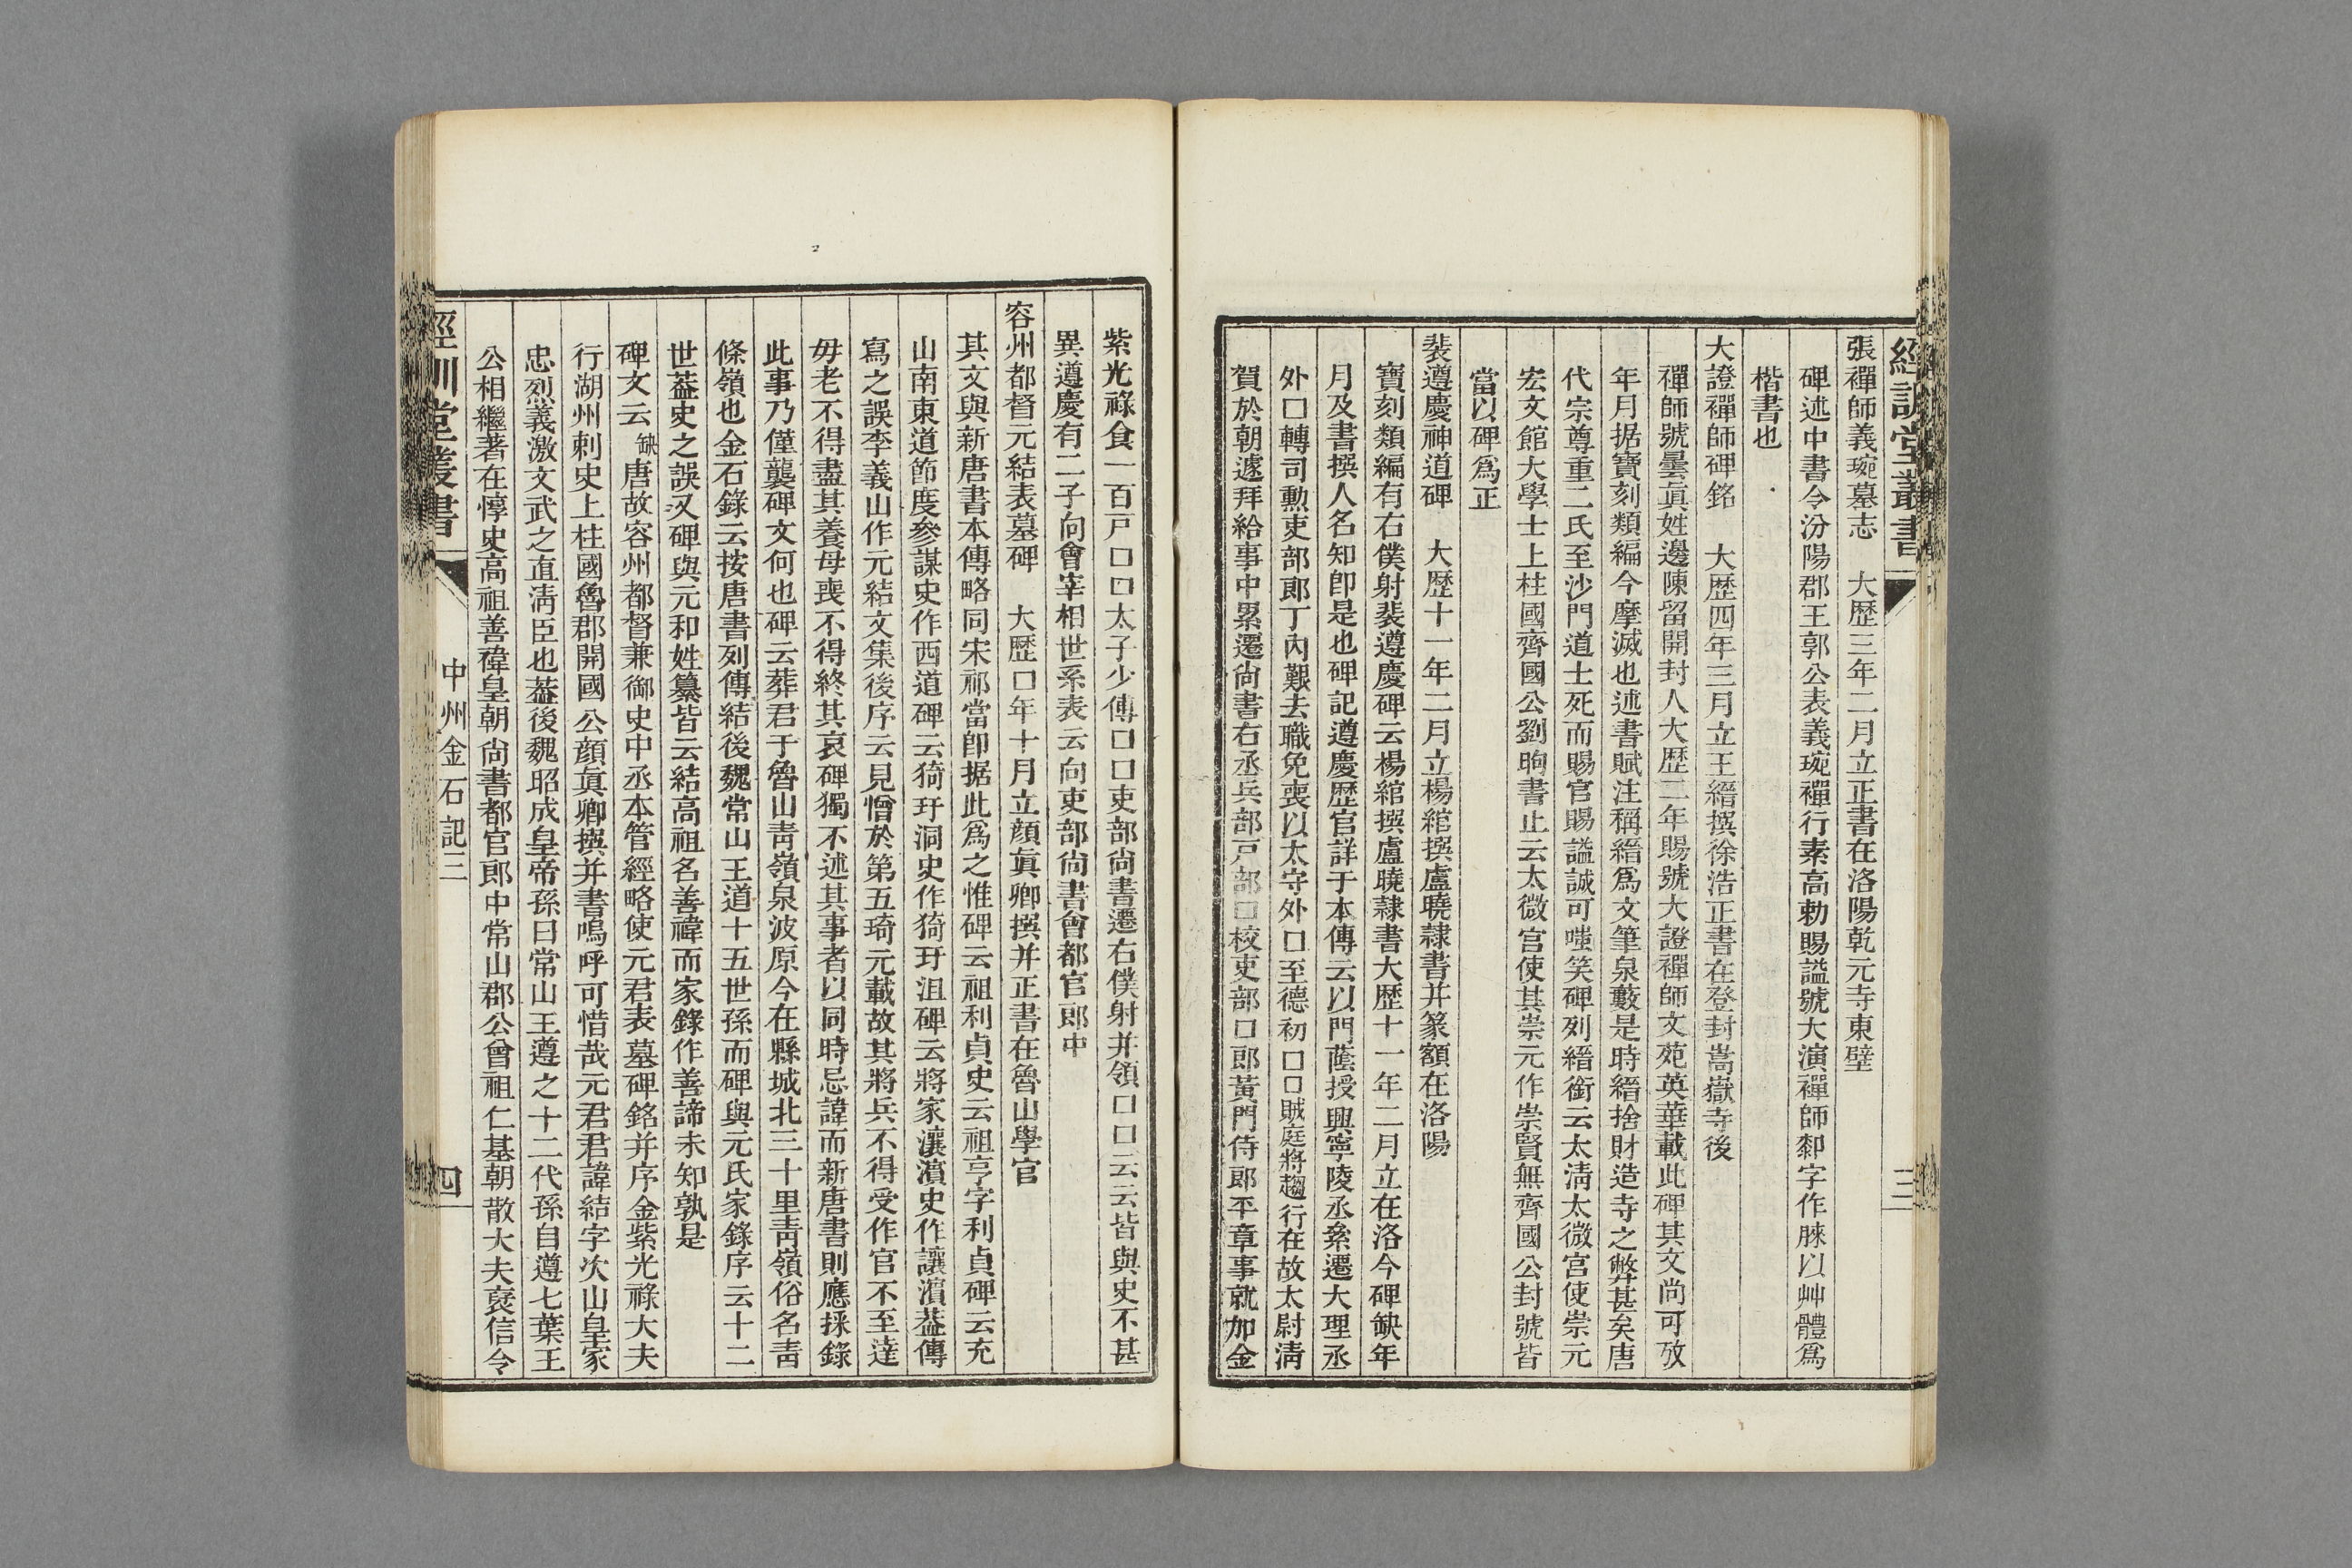 經訓堂叢書
三
張禪師義琬墓志　大歷三年二月立正書在洛陽乾元寺東壁
碑述中書令汾陽郡王郭公表義琬禪行素高勅賜謚號大演禪師
字作
以艸體爲
楷書也
大證禪師碑銘　大歷四年三月立王縉撰徐浩正書在登封嵩嶽寺後
禪師號曇眞姓邊陳留開封人大歷二年賜號大證禪師文苑英華載此碑其文尚可攷
年月据寶刻類編今摩滅也述書賦注稱縉爲文筆泉藪是時縉捨財造寺之弊甚矣唐
代宗尊重二氏至沙門道士死而賜官賜謚誠可嗤笑碑列縉銜云太淸太微宮使崇元
宏文館大學士上柱國齊國公劉昫書止云太微宮使其崇元作崇賢無齊國公封號皆
當以碑爲正
裴遵慶神道碑　大歷十一年二月立楊綰撰盧曉隷書并篆額在洛陽
寶刻類編有右僕射裴遵慶碑云楊綰撰盧曉隷書大歷十一年二月立在洛今碑缺年
月及書撰人名知卽是也碑記遵慶歷官詳于本傳云以門蔭授興寧陵丞叅遷大理丞
外口轉司勲吏部郎丁內艱去職免喪以太守外口至德初口口賊庭將趨行在故太尉淸
賀於朝遽拜給事中累遷尙書右丞兵部戸部口校吏部口郎黃門侍郎平章事就加金
紫光祿食一百戸口口太子少傅口口吏部尙書遷右僕射并領口口云云皆與史不甚
異遵慶有二子向會宰相世系表云向吏部尙書會都官郎中
容州都督元結表墓碑　大歷口年十月立顔眞卿撰并正書在魯山學官
其文與新唐書本傳略同宋祁當卽据此爲之惟碑云祖利貞史云祖亨字利貞碑云充
山南東道節度參謀史作西道碑云猗玗洞史作猗玗沮碑云將家瀼濱史作讓濱葢傳
寫之誤李義山作元結文集後序云見憎於第五琦元載故其將兵不得受作官不至達
毋老不得盡其養母喪不得終其哀碑獨不述其事者以同時忌諱而新唐書則應採錄
此事乃僅襲碑文何也碑云葬君于魯山靑嶺泉波原今在縣城北三十里靑嶺俗名靑
條嶺也金石錄云按唐書列傳結後魏常山王道十五世孫而碑與元氏家錄序云十二
世葢史之誤又碑與元和姓纂皆云結高祖名善禕而家錄作善諦未知孰是
碑文云缺唐故容州都督兼御史中丞本管經略使元君表墓碑銘并序金紫光祿大夫
行湖州刺史上柱國魯郡開國公顔眞卿撰并書嗚呼可惜哉元君君諱結字次山皇家
忠烈義激文武之直淸臣也葢後魏昭成皇帝孫曰常山王遵之十二代孫自遵七葉王
公相繼著在惇史高祖善禕皇朝尙書都官郎中常山郡公曾祖仁基朝散大夫襃信令
經訓堂叢書
中州金石記三
四